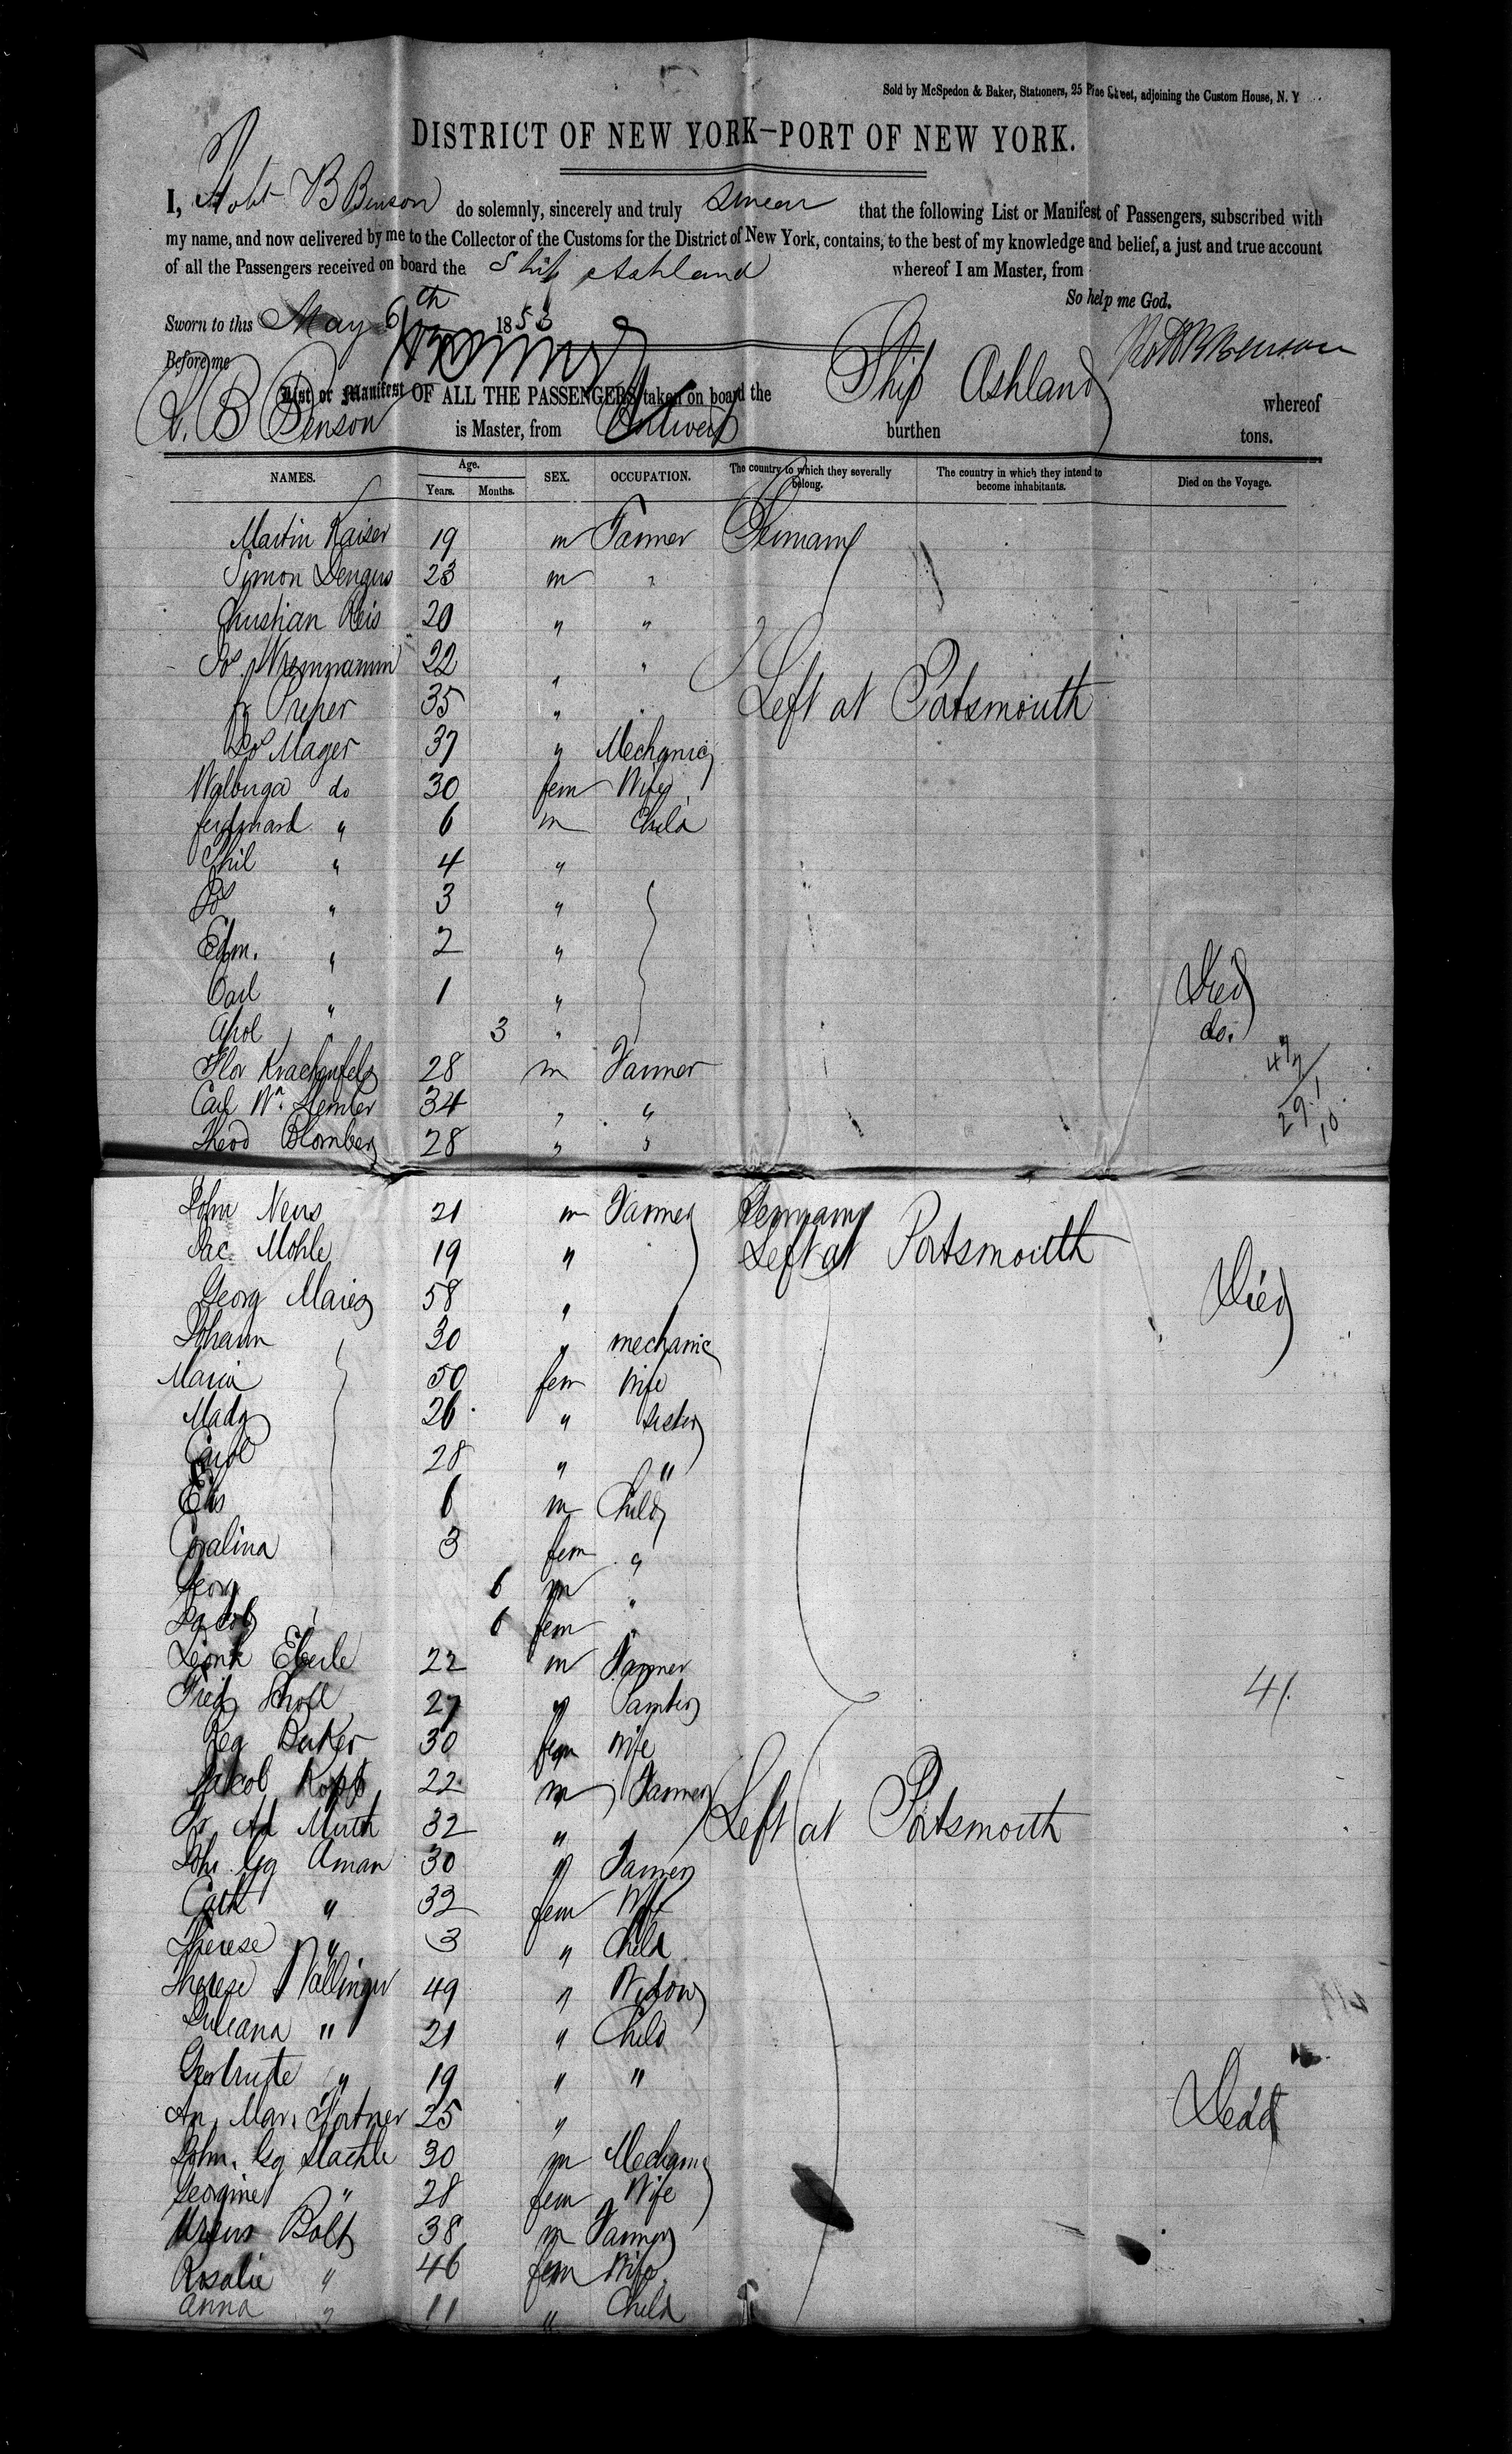 Sold by McSpedon & Baker, Stationers, 25 Pine Street, adjoining the Custom House, N. Y
DISTRICT OF NEW YORK—PORT OF NEW YORK.
I, Robt B Benson do solemnly, sincerely and truly swear that the following List or Manifest of Passengers, subscribed with
my name, and now delivered by me to the Collector of the Customs for the District of New York, contains, to the best of my knowledge and belief, a just and true account
of all the Passengers received on board the Ship Ashland whereof I am Master, from
So help me God.
Sworn to this May 6th 1853
Before me Robt B Benson
List or Manifest OF ALL THE PASSENGERS taken on board the Ship Ashland whereof
R. B Benson is Master, from Antwerp burthen tons.
NAMES. Age. Years. Months. SEX. OCCUPATION. The country to which they severally belong. The country in which they intend to become inhabitants. Died on the Voyage.
Martin Kaiser 19 m Farmer Germany
Simon 23 m "
Christian Reis 20 " "
22 " "
35 " Left at Portsmouth
Mager 37 " Mechanic
Walburga do 30 fem Wife
Ferdinand " 6 m Child
Phil " 4 "
" 3 "
Edm. " 2 "
Carl " 1 " Died
" 3 " do.
Flor 28 m Farmer
Carl Wm 34 " "
Theod Blomberg 28 " "
John Neus 21 m Farmer Germany
Jac. Mohle 19 " Left at Portsmouth
Georg 58 " Died
Johann 30 " mechanic
Maria 50 fem Wife
Madg 26 " Sister
Carol 28 " "
Elis 6 m Child
Coralina 3 fem "
Georg 6 m "
Jacob 6 fem "
Leonh Eberle 22 m Farmer
Fried Scholl 27 "
Reg Barker 30 fem Wife
Jakob Kopp 22 m Farmer
Fr. Ad Muth 32 " Left at Portsmouth
Joh. Gg Aman 30 " Farmer
Cath " 32 fem Wife
Therese " 3 " Child
Therese 49 " Widow
Juliana " 21 " Child
Gertrude " 19 " "
An. Mar. Hortner 25 " Dead
John. Gg Stachle 30 m Mechanic
Georgine " 28 fem Wife
Bolt 38 m Farmer
Rosalie " 46 fem Wife
Anna " 11 " Child